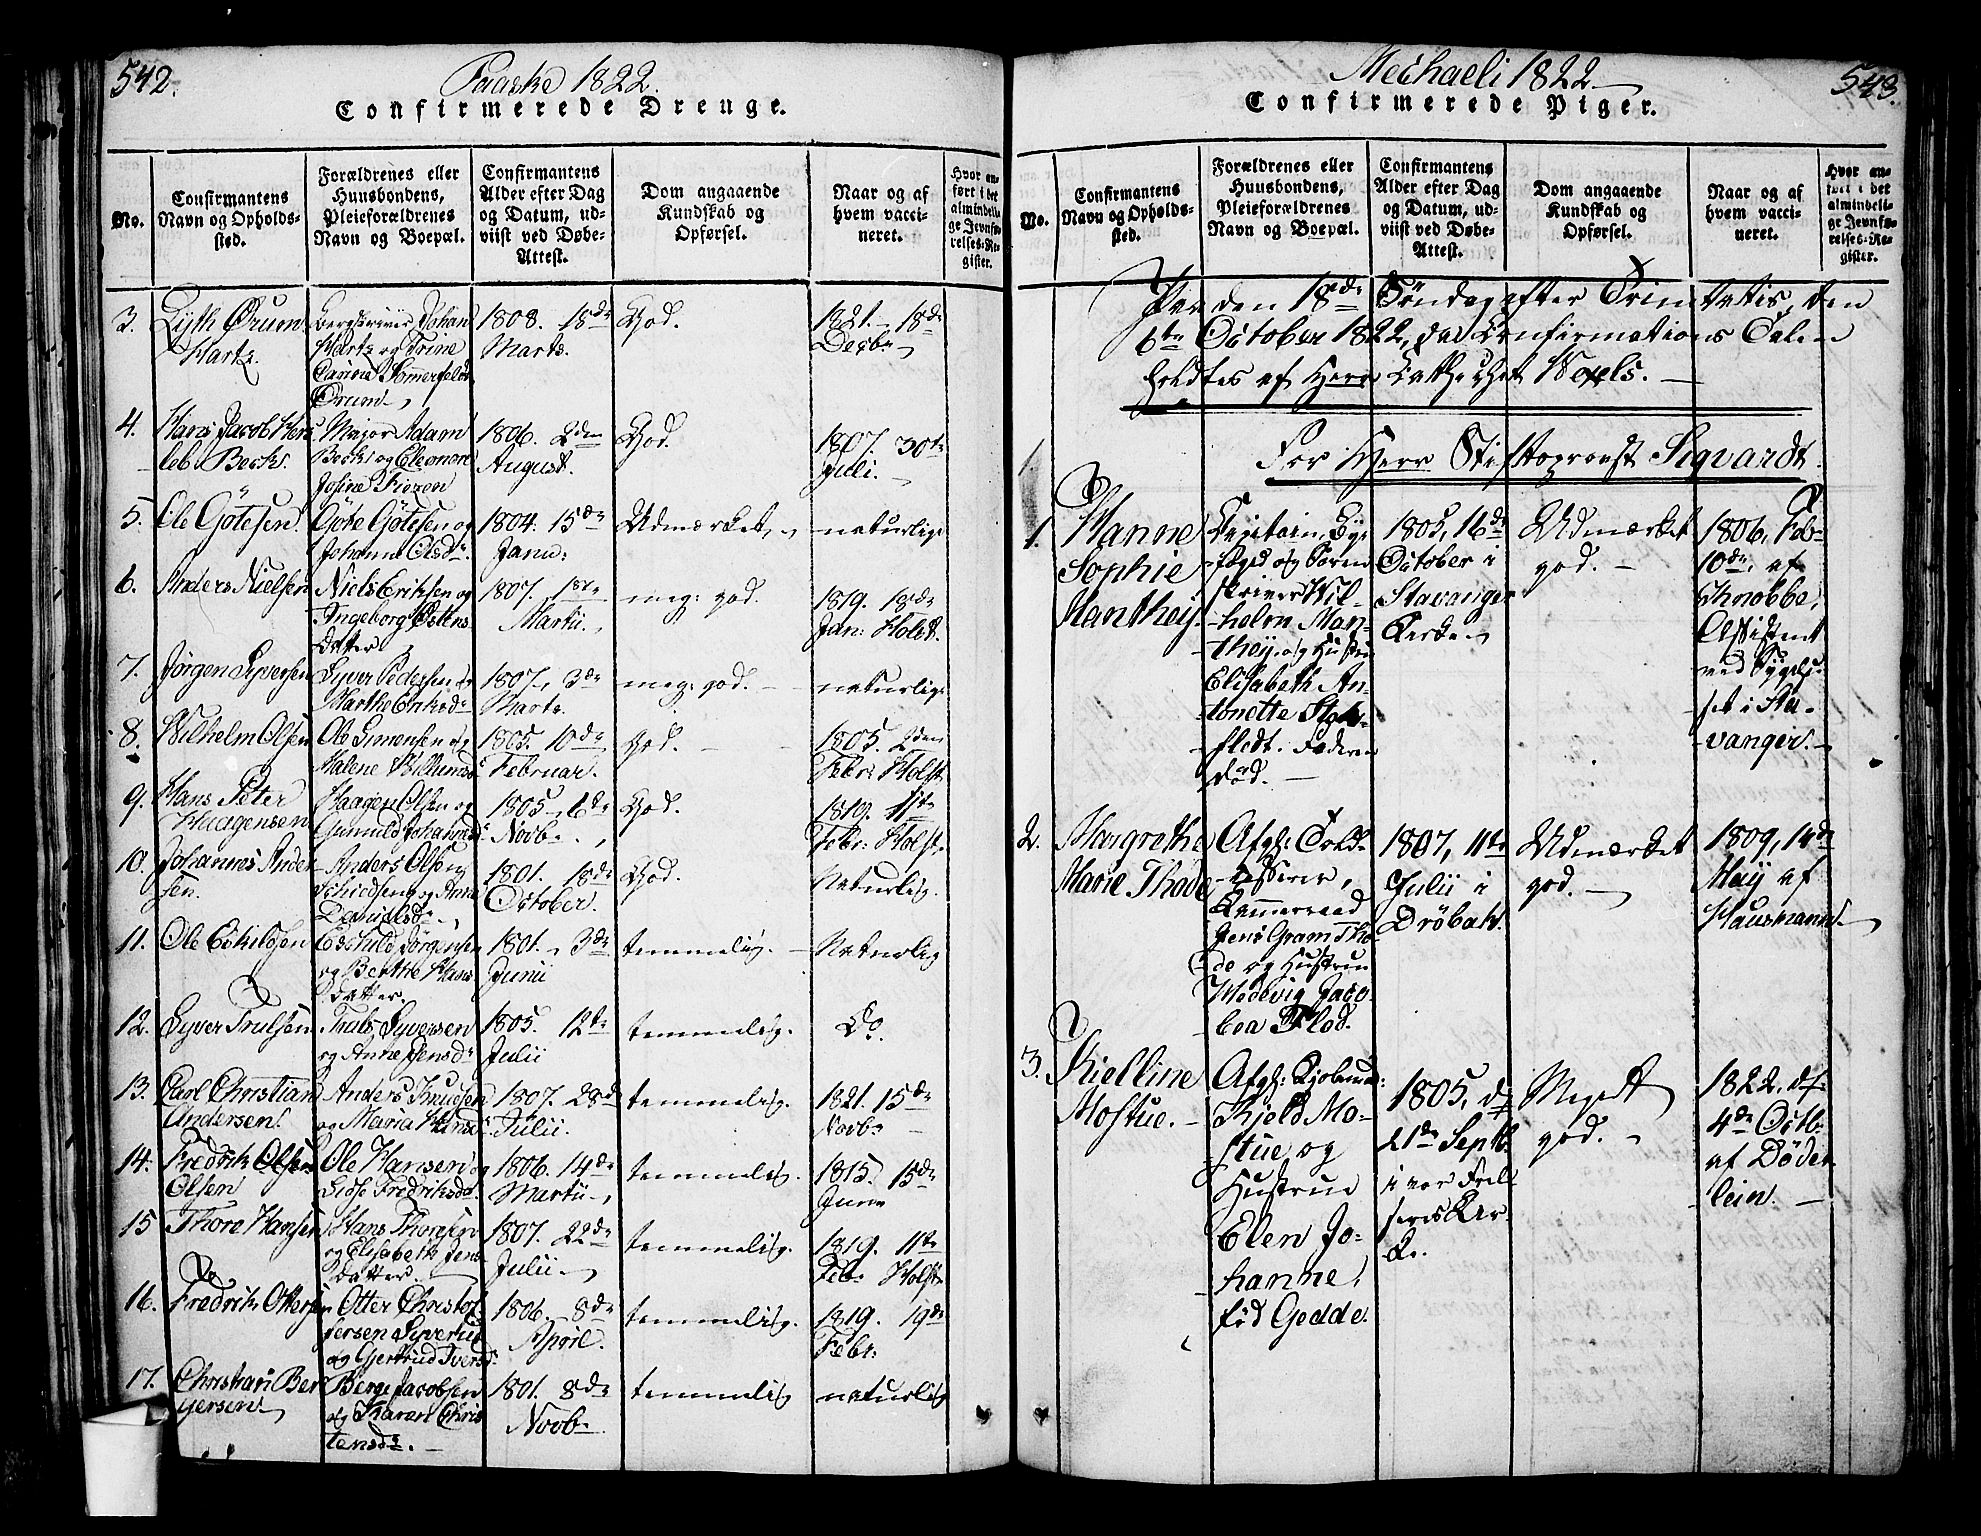 542.
Paaske 1822.
Confirmerede Drenge.
No.
Confirmantens
Navn og Opholds-
sted.
Forældrenes eller
Huusbondens,
Pleieforældrenes
Navn og Boepæl.
Confirmantens
Alder efter Dag
og Datum, ud-
viist ved Døbe-
Attest.
Dom angaaende
Kundskab og
Opførsel.
Naar og af
hvem vacci-
neret.
Hvor an-
ført i det
almindeli-
ge Jevnfø-
relses-Re-
gister.
3.
Lyth Ørum
Hartz.
Bergskriver Johan
Hartz og Trine
Carine Sommerfeldt
Ørum
1808. 18de
Marts.
God.
1821. 18de
Decbr
4.
Hans Jacob Hers
leb Becks.
Major Adam
Becks og Eleonore
Josine
1806. 2den
August.
God.
1807. 30te
Juli.
5.
Ole Götesen.
Göte Götesen og
Johanne Olsdr
1804. 15de
Janu:
Udmærket,
naturlige
6.
Anders Nielsen
Niels Eriksen og
Ingeborg Ostens
datter
1807. 18de
Martii.
meg: god.
1819. 18de
Jan: Holst.
7.
Jörgen Syversen
Syver Pedersen og
Marthe Eriksdr
1807, 3de
Marts.
meg: god.
naturlige
8.
Wilhelm Olsen
Ole Simensen og
Malene Willumsd
1805. 10de
Februar.
god.
1805. 2den
Febr: Holst
9.
Hans Peter
Haagensen
Haagen Olsen og
Gunnild Johannesd
1805, 6te
Novbr
God.
1819. 11te
Febr: Holst
10.
Johannes Ander
sen.
Anders Olsen
og Anne
Davidsdr
1801. 18de
October.
God.
Naturlig.
11.
Ole Eskildsen
Eschild Jørgensen
og Berthe Hans
datter.
1801. 3de
Junii
temmelig.
Naturlig
12.
Syver Trulsen
Truls Syversen
og Anne Jensdr
1805. 12te
Julii
temmelig.
Do.
13.
Carl Christian
Andersen.
Anders Knudsen
og Maria Hansd
1807. 28de
Julii.
temmelig.
1821. 15de
Novbr
14.
Fredrik Olsen
Olsen
Ole Hansen og
Lidse Fredriksdr.
1806. 14de
Martii
temmelig.
1815. 15de
Junii
15
Thore Hansen
Hans Thoresen
og Elisabeth Jens
datter.
1807. 22de
Julii
temmelig.
1819. 11te
Feb: Holst
16.
Fredrik Ottersen
Otter Christof
fersen Syverud
og Gjertrud Iversd
1806. 8de
April.
temmelig.
1819. 19de
Febr:
17.
Christian Ber
gersen
Berge Jacobsen
og Karen Chris
tensdr.
1801. 8de
Novbr
temmelig
naturlig
Mechaeli 1822.
543.
Confirmerede Piger.
No.
Confirmantens
Navn og Opholds-
sted.
Forældrenes eller
Huusbondens,
Pleieforældrenes
Navn og Boepæl.
Confirmantens
Alder efter Dag
og Datum, ud-
viist ved Døbe-
Attest.
Dom angaaende
Kundskab og
Opførsel.
Naar og af
hvem vacci-
neret.
Hvor an-
ført i det
almindeli-
ge Jevnfø-
relses-Re-
gister.
Paa den 18de Söndag efter Trinitatis, den
6te October 1822, da Confirmations Talen
holdtes af Herr Catechet Wexels.
For Herr Stiftsprovst Sigvardt
1.
Hanne
Sophie
Manthey.
Capitain, By-
foged og Soren
skriver Wil-
helm Man-
they og Hustru
Elisabeth An-
tonette Stok-
fledt. Faderen
död.
1805, 16de
October i
Stavanger
Kirke
Udmærket
god.
1806, Feb
10de, af
Knobbe,
Assistent
ved Sygehu-
set i Sta-
vanger.
2.
Margrethe
Marie Thode
Afg: Told-
Kammerraad
Jens Gram Tho-
de og Hustrue
Hedevig Jaco-
bea Flod.
1807, 11te
Julii i
Dröbak.
Udmærket
god.
1809, 14de
May af
Hausmann
3.
Kielline
Mostue.
Afg: Kjöbmand
Kjeld Mo-
stue og
Hustrue
Elen Jo-
hanne,
föd Gedde.
1805, d
21de Septb.
i vor Frel
seris Kir-
ke.
Meget
god.
1822, d
4de Octb.
af Döder
lein.